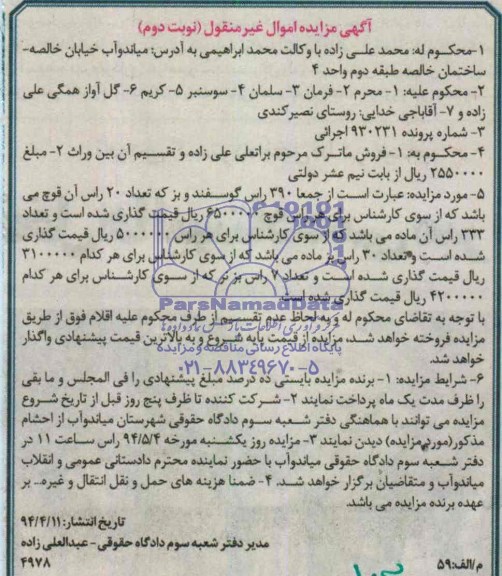 آگهی مزایده اموال غیر منقول (نوبت دوم)
۱-محکوم له: محمد علی زاده با وکالت محمد ابراهیمی به آدرس: میاندوآب خیابان خالصه-
ساختمان خالصه طبقه دوم واحد ۴
۲- محکوم علیه: ۱- محرم ۲- فرمان ۳- سلمان ۴- سوسنبر ۵- کریم ۶- گل آواز همگی علی
زاده و ۷- آقاباجی خدایی: روستای نصیرکندی
۳- شماره پرونده ۹۳۰۲۳۱ اجرائی
۴- محکوم به: ۱- فروش ماترک مرحوم براتعلی علی زاده و تقسیم آن بین وراث ۲- مبلغ
۲۵۵۰۰۰۰ ریال از بابت نیم عشر دولتی
۵- مورد مزایده: عبارت است از جمعا ۳۹۰ راس گوسفند و بز که تعداد ۲۰ راس آن قوچ می
باشد که از سوی کارشناس برای هر راس قوچ ۶۵۰۰۰۰۰ ریال قیمت گذاری شده است و تعداد
۳۳۳ راس آن ماده می باشد که از سوی کارشناس برای هر راس ۵۰۰۰۰۰۰ ریال قیمت گذاری
شده است و تعداد ۳۰ راس بز ماده می باشد که از سوی کارشناس برای هر کدام ۳۱۰۰۰۰۰
ریال قیمت گذاری شده است و تعداد ۷ راس بز نر که از سوی کارشناس برای هر کدام
۴۲۰۰۰۰۰ ریال قیمت گذاری شده است
ParsNamadData
با توجه به تقاضای محکوم له و به لحاظ عدم تقسیم از طرف محکوم علیه اقلام فوق از طریق
مزایده فروخته خواهد شد، مزایده از قیمت پایه شروع و به بالاترین قیمت پیشنهادی واگذار
خواهد شد.
پایگاه اطلاع رسانی مناقصه و مزایده
۰۲۱-۸۸۳۴۹۶۷۰-۵
۶- شرایط مزایده: ۱- برنده مزایده بایستی ده درصد مبلغ پیشنهادی را فی المجلس و ما بقی
را ظرف مدت یک ماه پرداخت نمایند ۲- شرکت کننده تا ظرف پنج روز قبل از تاریخ شروع
مزایده می توانند با هماهنگی دفتر شعبه سوم دادگاه حقوقی شهرستان میاندوآب از احشام
مذکور(مورد مزایده) دیدن نمایند ۳- مزایده روز یکشنبه مورخه ۹۴/۵/۴ راس ساعت ۱۱ در
دفتر شعبه سوم دادگاه حقوقی میاندوآب با حضور نماینده محترم دادستانی عمومی و انقلاب
میاندوآب و متقاضیان برگزار خواهد شد. ۴- ضمنا هزینه های حمل و نقل انتقال و غیره... بر
عهده برنده مزایده می باشد.
تاریخ انتشار: ۹۴/۴/۱۱
مدیر دفتر شعبه سوم دادگاه حقوقی- عبدالعلی زاده
م/الف: ۵۹
۴۹۷۸